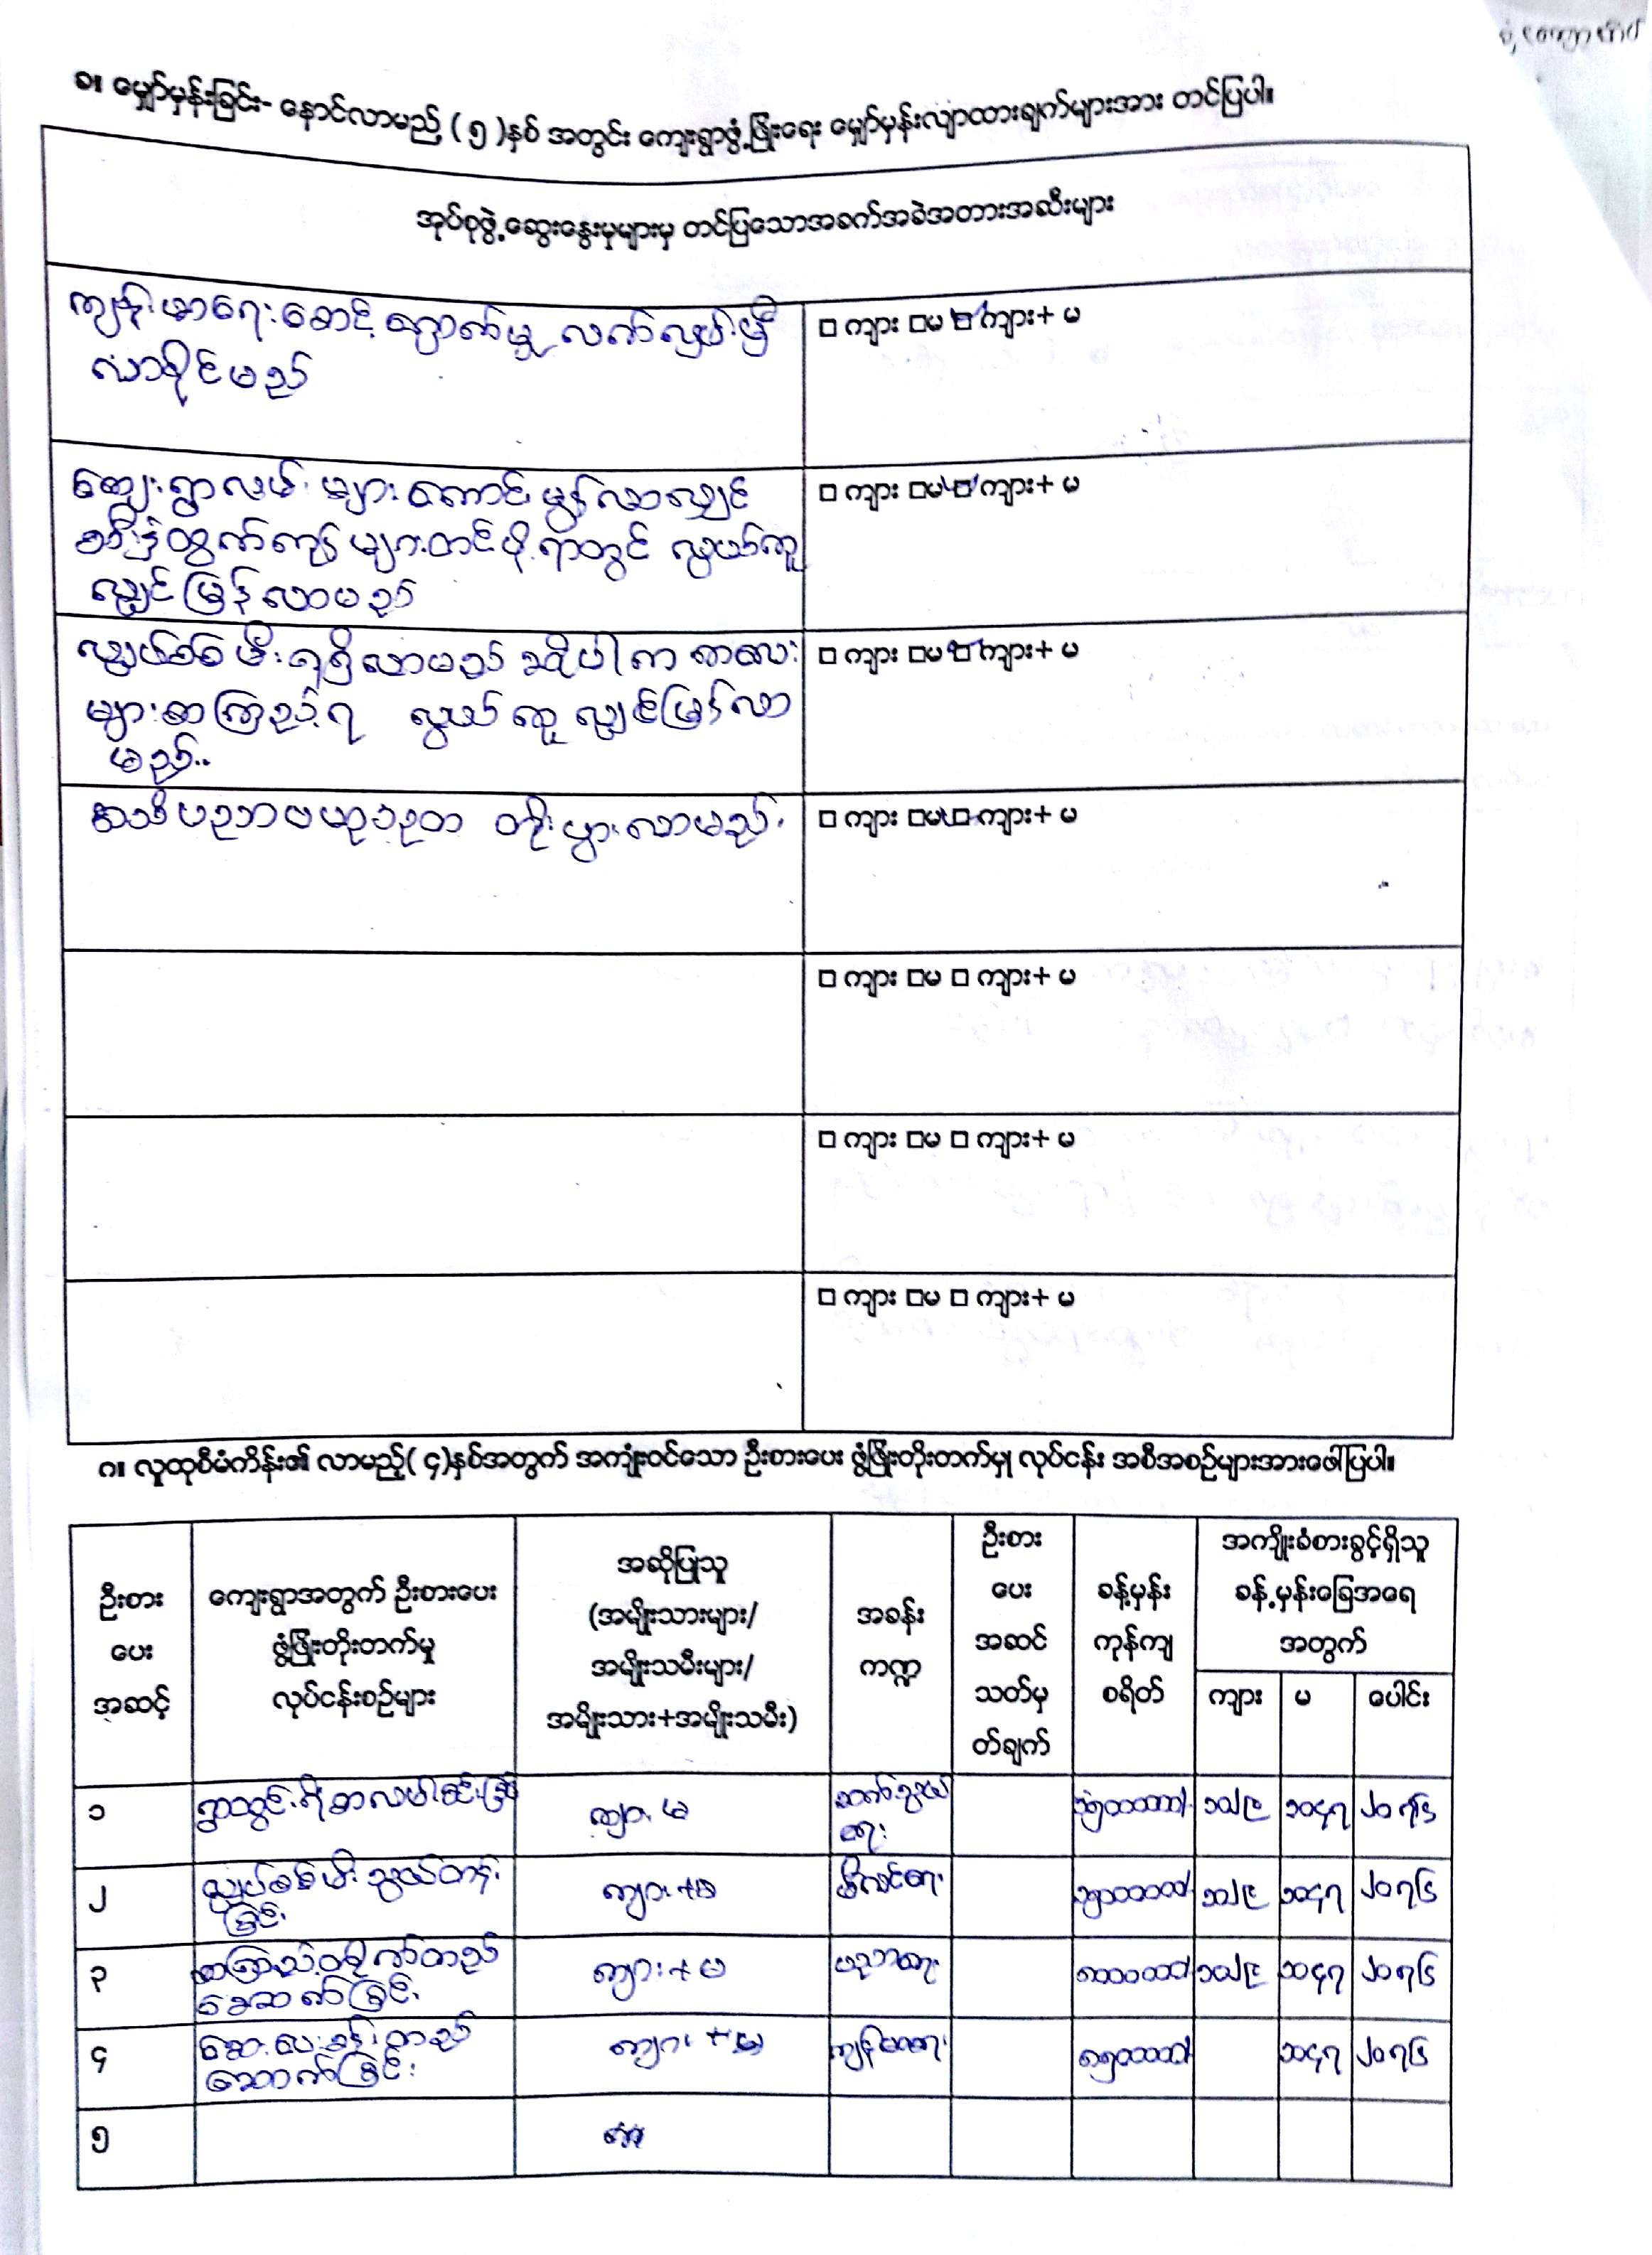 ခ။ မျှော်မှန်းခြင်း- နောင်လာမည့် ( ၅ )နှစ် အတွင်း ကျေးရွာဖွံ့ဖြိုးရေး မျှော်မှန်းလျာထားချက်များအား တင်ပြပါ။
အုပ်စုဖွဲ့ဆွေးနွေးမှုများမှ တင်ပြသောအခက်အခဲအတားအဆီးများ
ကျန်းမာရေးစောင့်ရှောက်မှု လက်လှမ်းမှီ
လာနိုင်မည်
□ ကျား □မ □ ကျား+ မ
ကျေးရွာလမ်းများ ကောင်းမွန်လာလျှင်
သီးနှံထွက်ကုန်များတင်ပို့ရာတွင် လွယ်ကူ
လျှင်မြန်လာမည်
□ ကျား □မ □ ကျား+ မ
လျှပ်စစ်မီးရရှိလာမည်ဆိုပါက ကလေး
များစာကြည့်ရ လွယ်ကူလျှင်မြန်လာ
မည်။
□ ကျား □မ □ ကျား+ မ
အသိပညာဗဟုသုတ တိုးပွားလာမည်။
□ ကျား □မ □ ကျား+ မ
□ ကျား □မ □ ကျား+ မ
□ ကျား □မ □ ကျား+ မ
□ ကျား □မ □ ကျား+ မ
ဂ။ လူထုစီမံကိန်း၏ လာမည့်( ၄)နှစ်အတွက် အကျုံးဝင်သော ဦးစားပေး ဖွံ့ဖြိုးတိုးတက်မှု လုပ်ငန်း အစီအစဉ်များအားဖေါ်ပြပါ။
ဦးစား
ပေး
အဆင့်
ကျေးရွာအတွက် ဦးစားပေး
ဖွံ့ဖြိုးတိုးတက်မှု
လုပ်ငန်းစဉ်များ
အဆိုပြုသူ
(အမျိုးသားများ/
အမျိုးသမီးများ/
အမျိုးသား+အမျိုးသမီး)
အခန်း
ကဏ္ဍ
ဦးစား
ပေး
အဆင်
သတ်မှ
တ်ချက်
ခန့်မှန်း
ကုန်ကျ
စရိတ်
အကျိုးခံစားခွင့်ရှိသူ
ခန့်မှန်းခြေအရေ
အတွက်
ကျား
မ
ပေါင်း
၁
ကျား မ
ဆက်သွယ်
ရေး
၁၀၂၉ ၁၀၄၇ ၂၀၇၆
၂
လျှပ်စစ်မီး သွယ်တန်း
ခြင်း
ကျား +မ
၁၀၂၉ ၁၀၄၇ ၂၀၇၆
၃
စာကြည့်တိုက်တည်
ဆောက်ခြင်း
ကျား + မ
ပညာရေး
၁၀၂၉ ၁၀၄၇ ၂၀၇၆
၄
ဆေးပေးခန်းတည်
ဆောက်ခြင်း
ကျား + မ
ကျန်းမာရေး
၁၀၄၇ ၂၀၇၆
၅